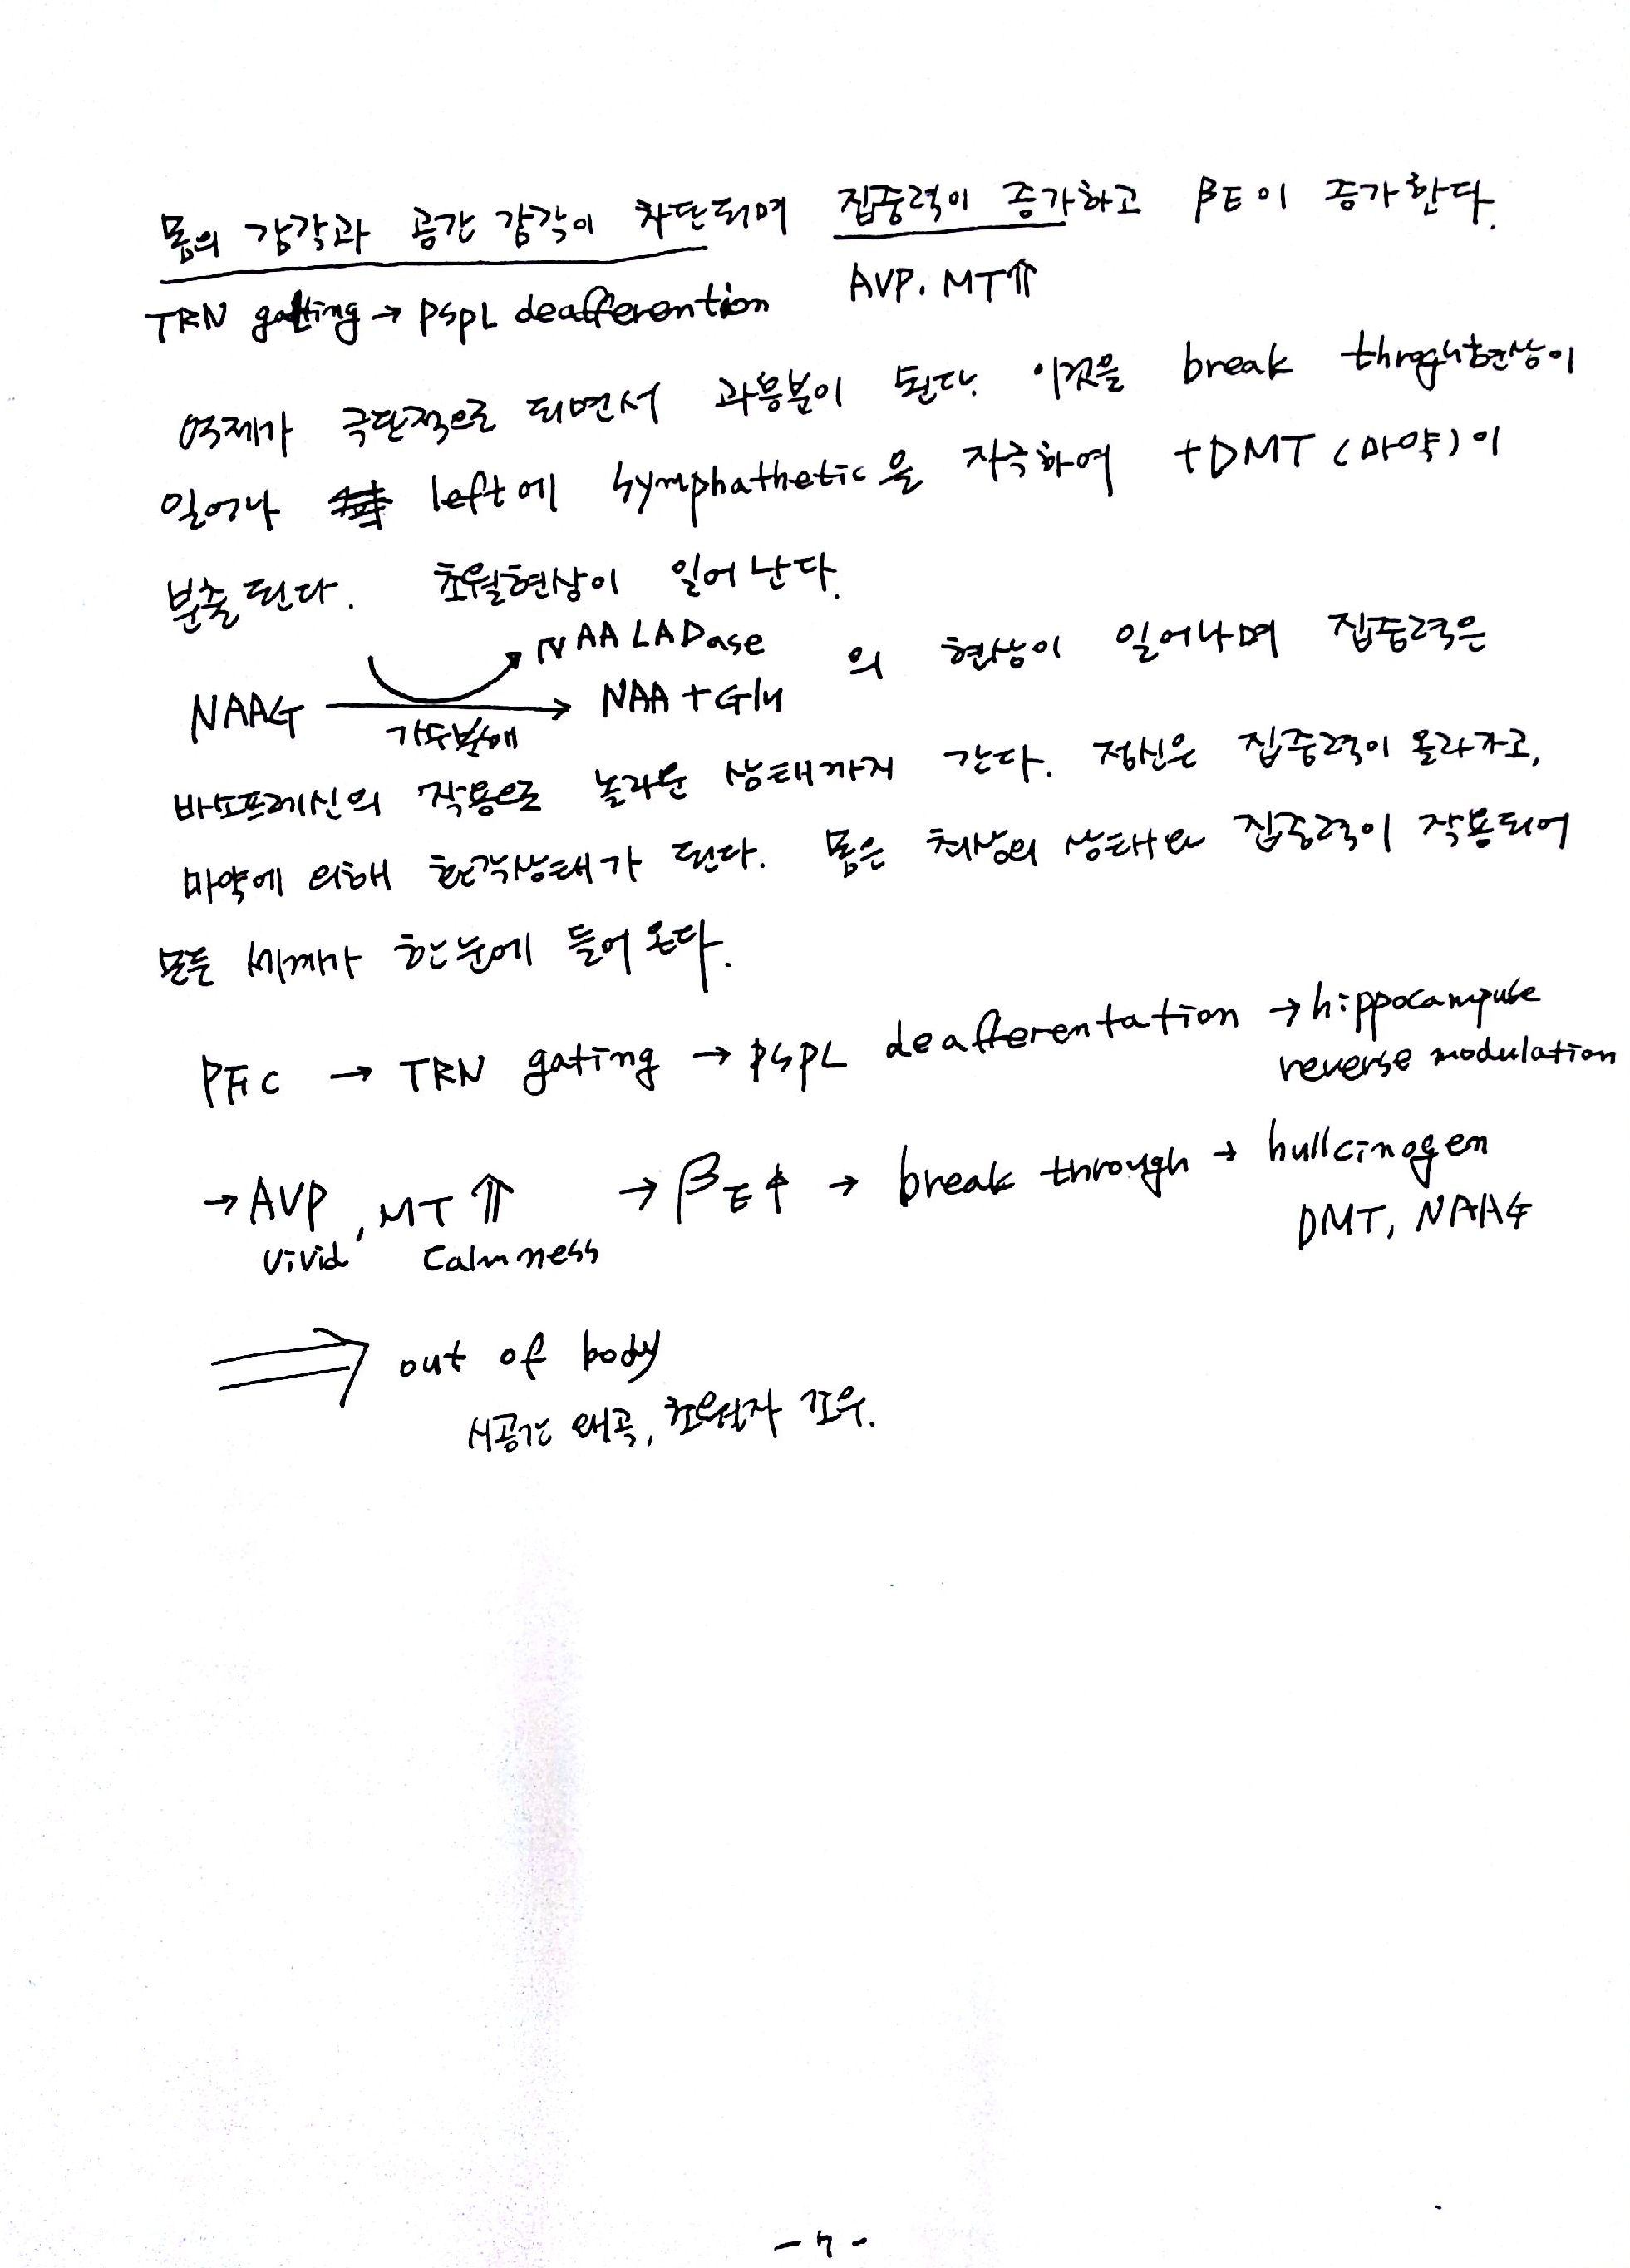 몸의 감각과 공간 감각이 차단되며 집중력이 증가하고 βE이 증가한다.
TRN gatting → PSPL deafferention AVP. MT⇑
억제가 극단적으로 되면서 과흥분이 된다. 이것을 break throgh현상이
일어나 left에 symphathetic을 자극하여 +DMT (마약)이
분출 된다. 초월현상이 일어 난다.
NAALADase
NAAG → NAA + Glu 의 현상이 일어나며 집중력은
가수분해
바소프레신의 작용으로 놀라운 상태까지 간다. 정신은 집중력이 올라가고,
마약에 의해 환각상태가 된다. 몸은 최상의 상태와 집중력이 작용되어
모든 세계가 한눈에 들어 온다.
PFC → TRN gating → PSPL deafferentation → hippocampuse
reverse modulation
→ AVP, MT ⇑ → βE↑ → break through → hullcinogen
vivid calmness DMT, NAAG
⇒ out of body
시공간 왜곡, 초월자 조우.
- 7 -